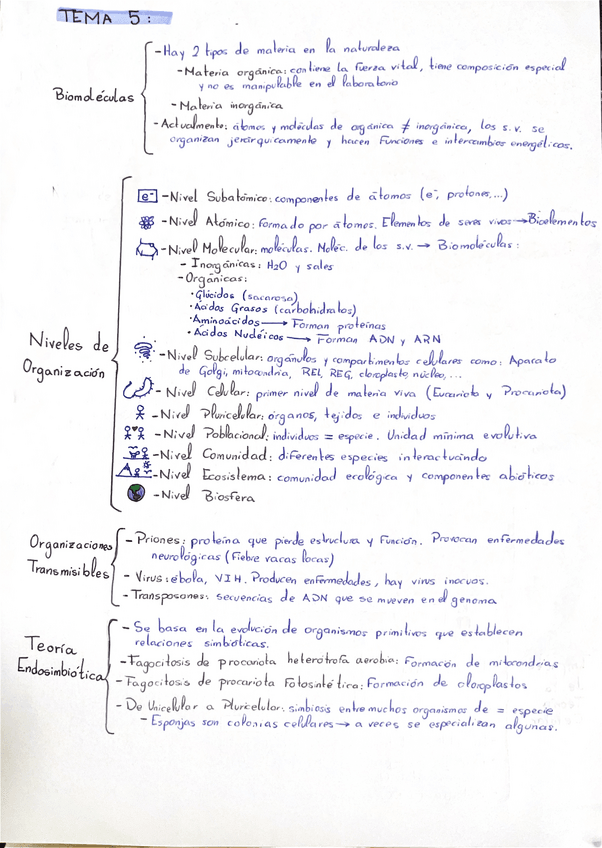 TEMA 5:
Biomoléculas
-Hay 2 tipos de materia en la naturaleza
-Materia orgánica: contiene la fuerza vital, tiene composición especial
y no es manipulable en el laboratorio
-Materia inorgánica
-Actualmente: átomos y moléculas de orgánica ≠ inorgánica, los s.v. se
organizan jerárquicamente y hacen funciones e intercambios energéticos.
Niveles de
Organización
e⁻ -Nivel Subatómico: componentes de átomos (e⁻, protones,...)
-Nivel Atómico: formado por átomos. Elementos de seres vivos→Bioelementos
-Nivel Molecular: moléculas. Moléc. de los s.v. → Biomoléculas:
- Inorgánicas: H₂O y sales
-Orgánicas:
·Glúcidos (sacarosa)
·Ácidos Grasos (carbohidratos)
·Aminoácidos → Forman proteínas
·Ácidos Nucléicos → Forman ADN y ARN
-Nivel Subcelular: orgánulos y compartimentos celulares como: Aparato
de Golgi, mitocondria, REL, REG, cloroplasto, núcleo,...
-Nivel Celular: primer nivel de materia viva (Eucariota y Procariota)
-Nivel Pluricelular: órganos, tejidos e individuos
-Nivel Poblacional: individuos = especie. Unidad mínima evolutiva
-Nivel Comunidad: diferentes especies interactuando
-Nivel Ecosistema: comunidad ecológica y componentes abióticos
-Nivel Biosfera
Organizaciones
Transmisibles
- Priones: proteína que pierde estructura y función. Provocan enfermedades
neurológicas (Fiebre vacas locas)
- Virus: ébola, VIH. Producen enfermedades, hay virus inocuos.
-Transposones: secuencias de ADN que se mueven en el genoma
Teoría
Endosimbiótica
- Se basa en la evolución de organismos primitivos que establecen
relaciones simbióticas.
-Fagocitosis de procariota heterótrofa aerobia: Formación de mitocondrias
-Fagocitosis de procariota fotosintética: Formación de cloroplastos
-De Unicelular a Pluricelular: simbiosis entre muchos organismos de = especie
- Esponjas son colonias celulares→ a veces se especializan algunas.